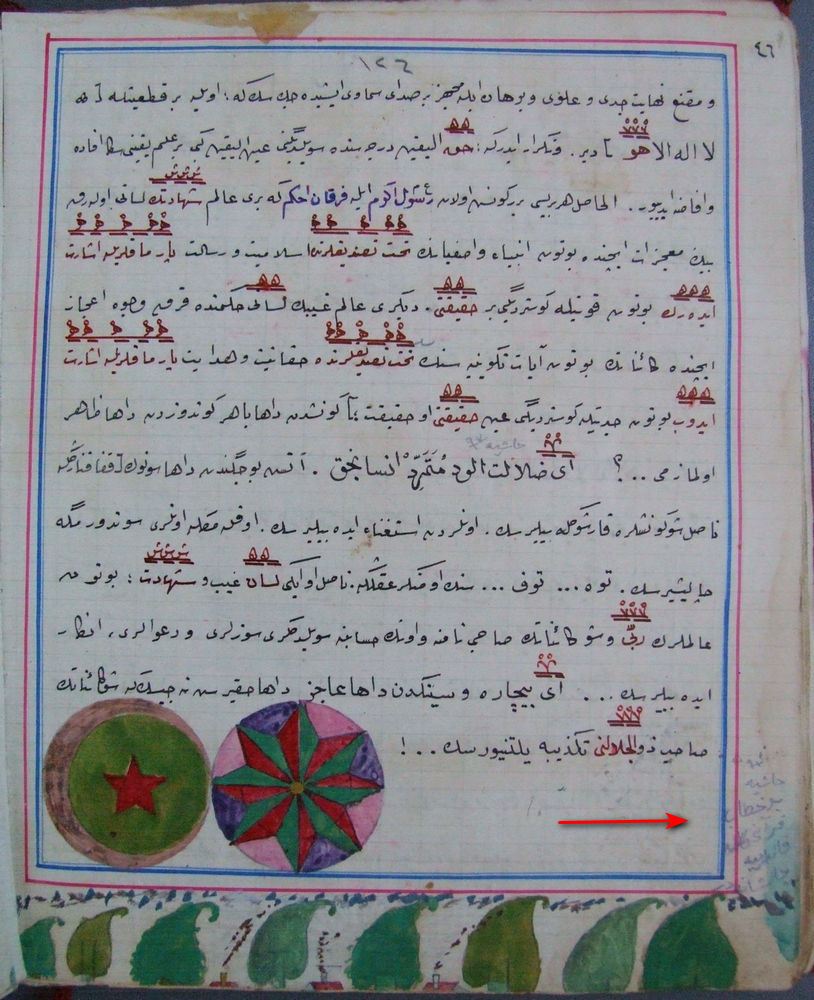 ٤٦
١٢٦
و مقنع نهایت جدی و علوی و برهان ایله مجهز بر صدای سماوی ایشیده جك سك كه؛ اویله بر قطعیتله [
لا اله الا هو ] دیر. و تكرار ایدركه: حق الیقین درجه سنده سویلدیگنی عین الیقین كبی بر علم یقینی سكا افاده
و افاضه ایدییور. الحاصل هر بریسی بر كونش اولان رسول اكرم ایله فرقان احكم كه بری عالم شهادتك لسانی اوله رق
بیك معجزات ایچنده بوتون انبیاء و اصفیانك تحت تصدیقلرنده اسلامیت و رسالت پارماقلریله اشارت
ایده رك بوتون قوتیله كوستردیگی بر حقیقتی. دیگری عالم غیبك لسانی حكمنده قرق وجوه اعجاز
ایچنده كائناتك بوتون آیات تكوینیه سنك تحت تصدیقلرنده حقانیت و هدایت پارماقلریله اشارت
ایدوب بوتون جدیتیله كوستردیگی عین حقیقتی او حقیقت؛ كونشدن داها باهر كوندوزدن داها ظاهر
حاشیه
اولمازمی ...؟ ای ضلالت آلود متمرد انسانجق. آتش بوجگندن داها سونوك
ناصل شو كونشلره قارشو كله بیلیرسك. اونلردن استغناء ایده بیلیرسك. اوفله مكله اونلری سوندورمگه
چالیشیرسك. توه ... توف ... سنك او منكر عقلكه. ناصل او ایكی لسان غیب و شهادت؛ بوتون
عالملرك ربی و شو كائناتك صاحبی نامنه و اونك حسابنه سویلدكلری سوزلری و دعوالری، انكار
ایده بیلیرسك ... ای بیچاره و سینكدن داها عاجز داها حقیر سن نه جیسك كه شو كائناتك
صاحب ذوالجلالنی تكذیبه یلتنیورسك ..!
حاشیه